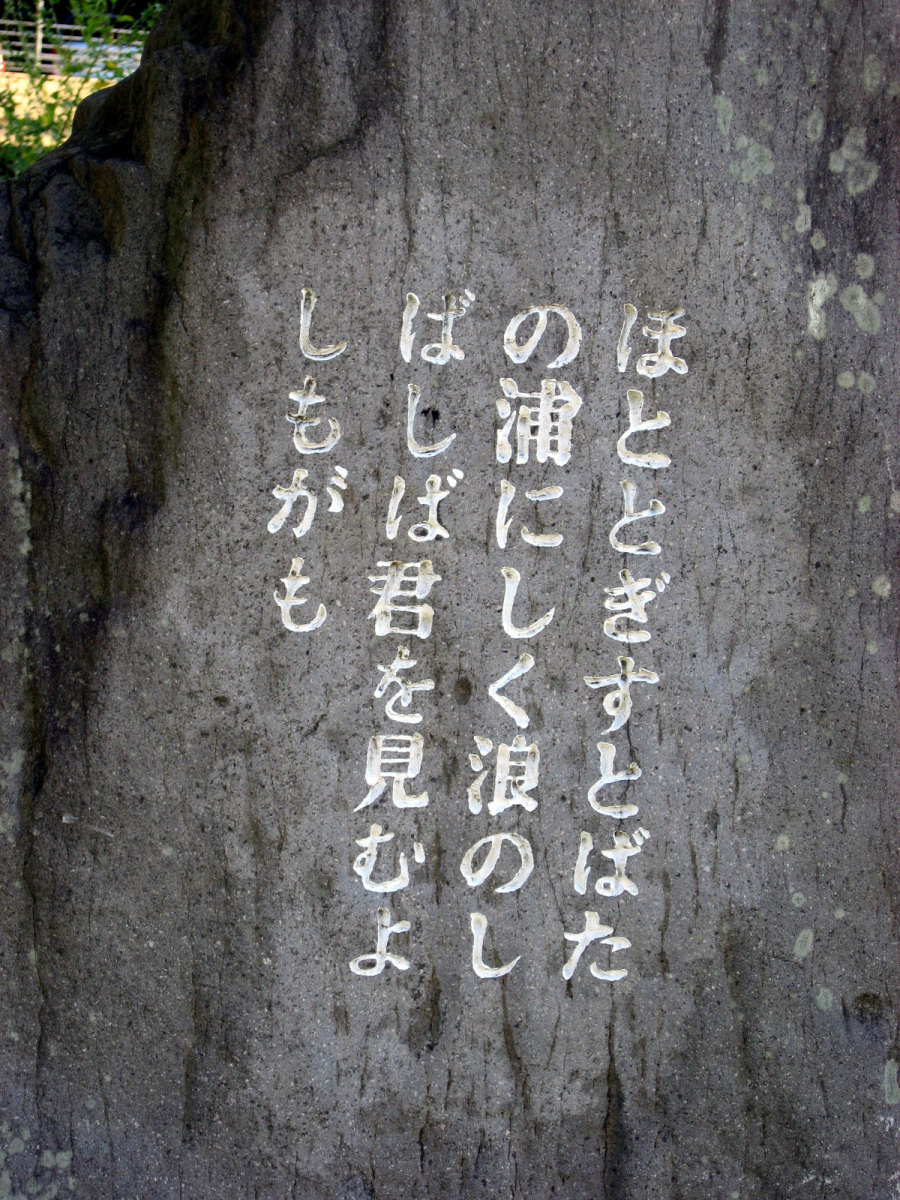 ほととぎすとばた
の浦にしく浪のし
ばしば君を見むよ
しもがも